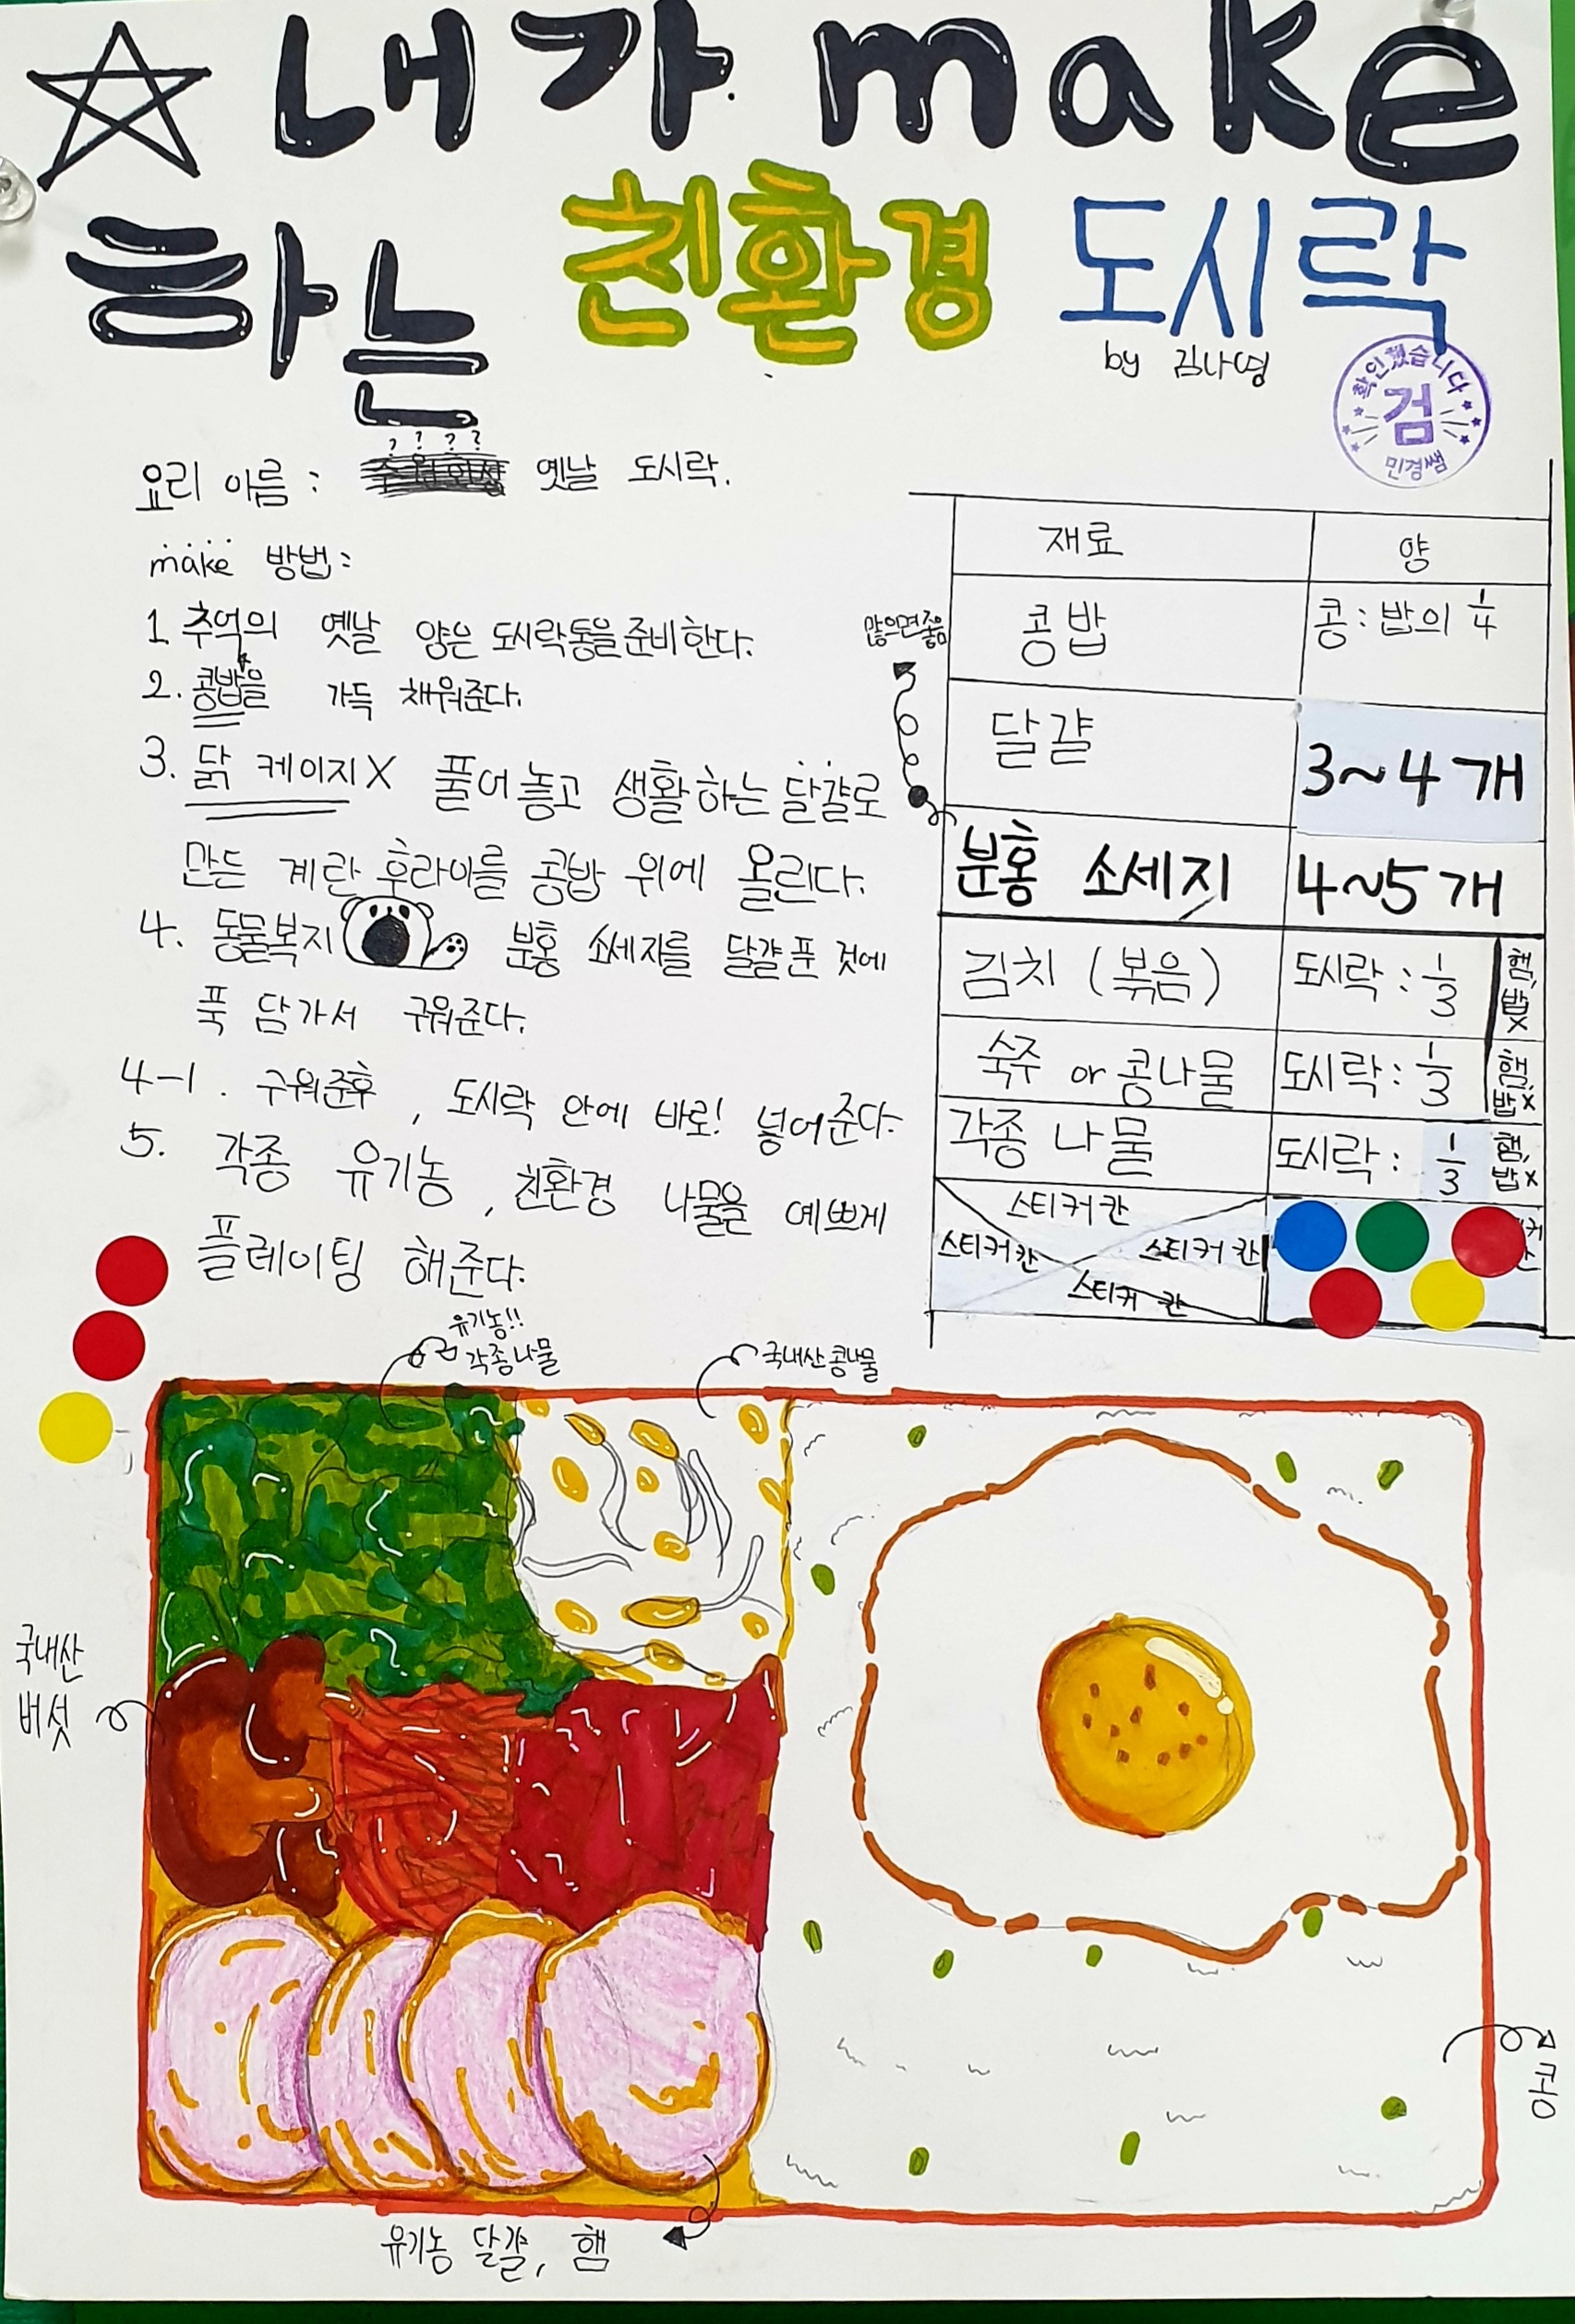 ☆ 내가 make
하는 친환경 도시락
by 김나영
확인했습니다
검
민경쌤
요리 이름 : 옛날 도시락.
make 방법 :
1. 추억의 옛날 양은 도시락통을 준비한다.
2. 콩밥을 가득 채워준다.
3. 닭 케이지X 풀어놓고 생활하는 달걀로
만든 계란 후라이를 콩밥 위에 올린다.
4. 동물복지 분홍 소세지를 달걀 푼 것에
푹 담가서 구워준다.
4-1. 구워준후, 도시락 안에 바로! 넣어준다.
5. 각종 유기농, 친환경 나물을 예쁘게
플레이팅 해준다.
많으면좋음
재료 양
콩밥 콩 : 밥의 1/4
달걀 3~4개
분홍 소세지 4~5개
김치 (볶음) 도시락 : 1/3 햄, 밥X
숙주 or 콩나물 도시락 : 1/3 햄, 밥X
각종 나물 도시락 : 1/3 햄, 밥X
스티커칸
스티커칸 스티커칸
스티커칸
유기농!!
각종나물
국내산콩나물
국내산
버섯
콩
유기농 달걀, 햄